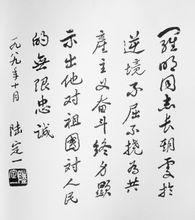 羅明同志长期處於
逆境不屈不挠为共
產主义奋斗终身顯
示出他对祖國对人民
的無限忠诚
陸定一
一九八九年十月